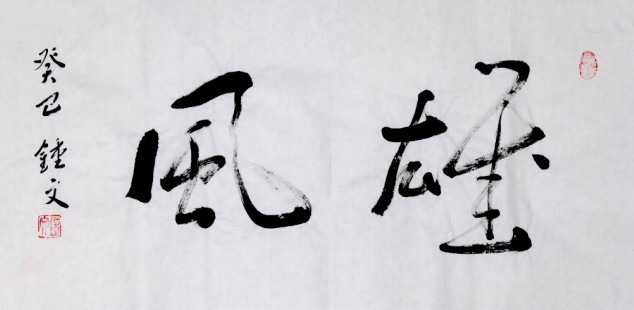 雄風
癸巳 鍾文